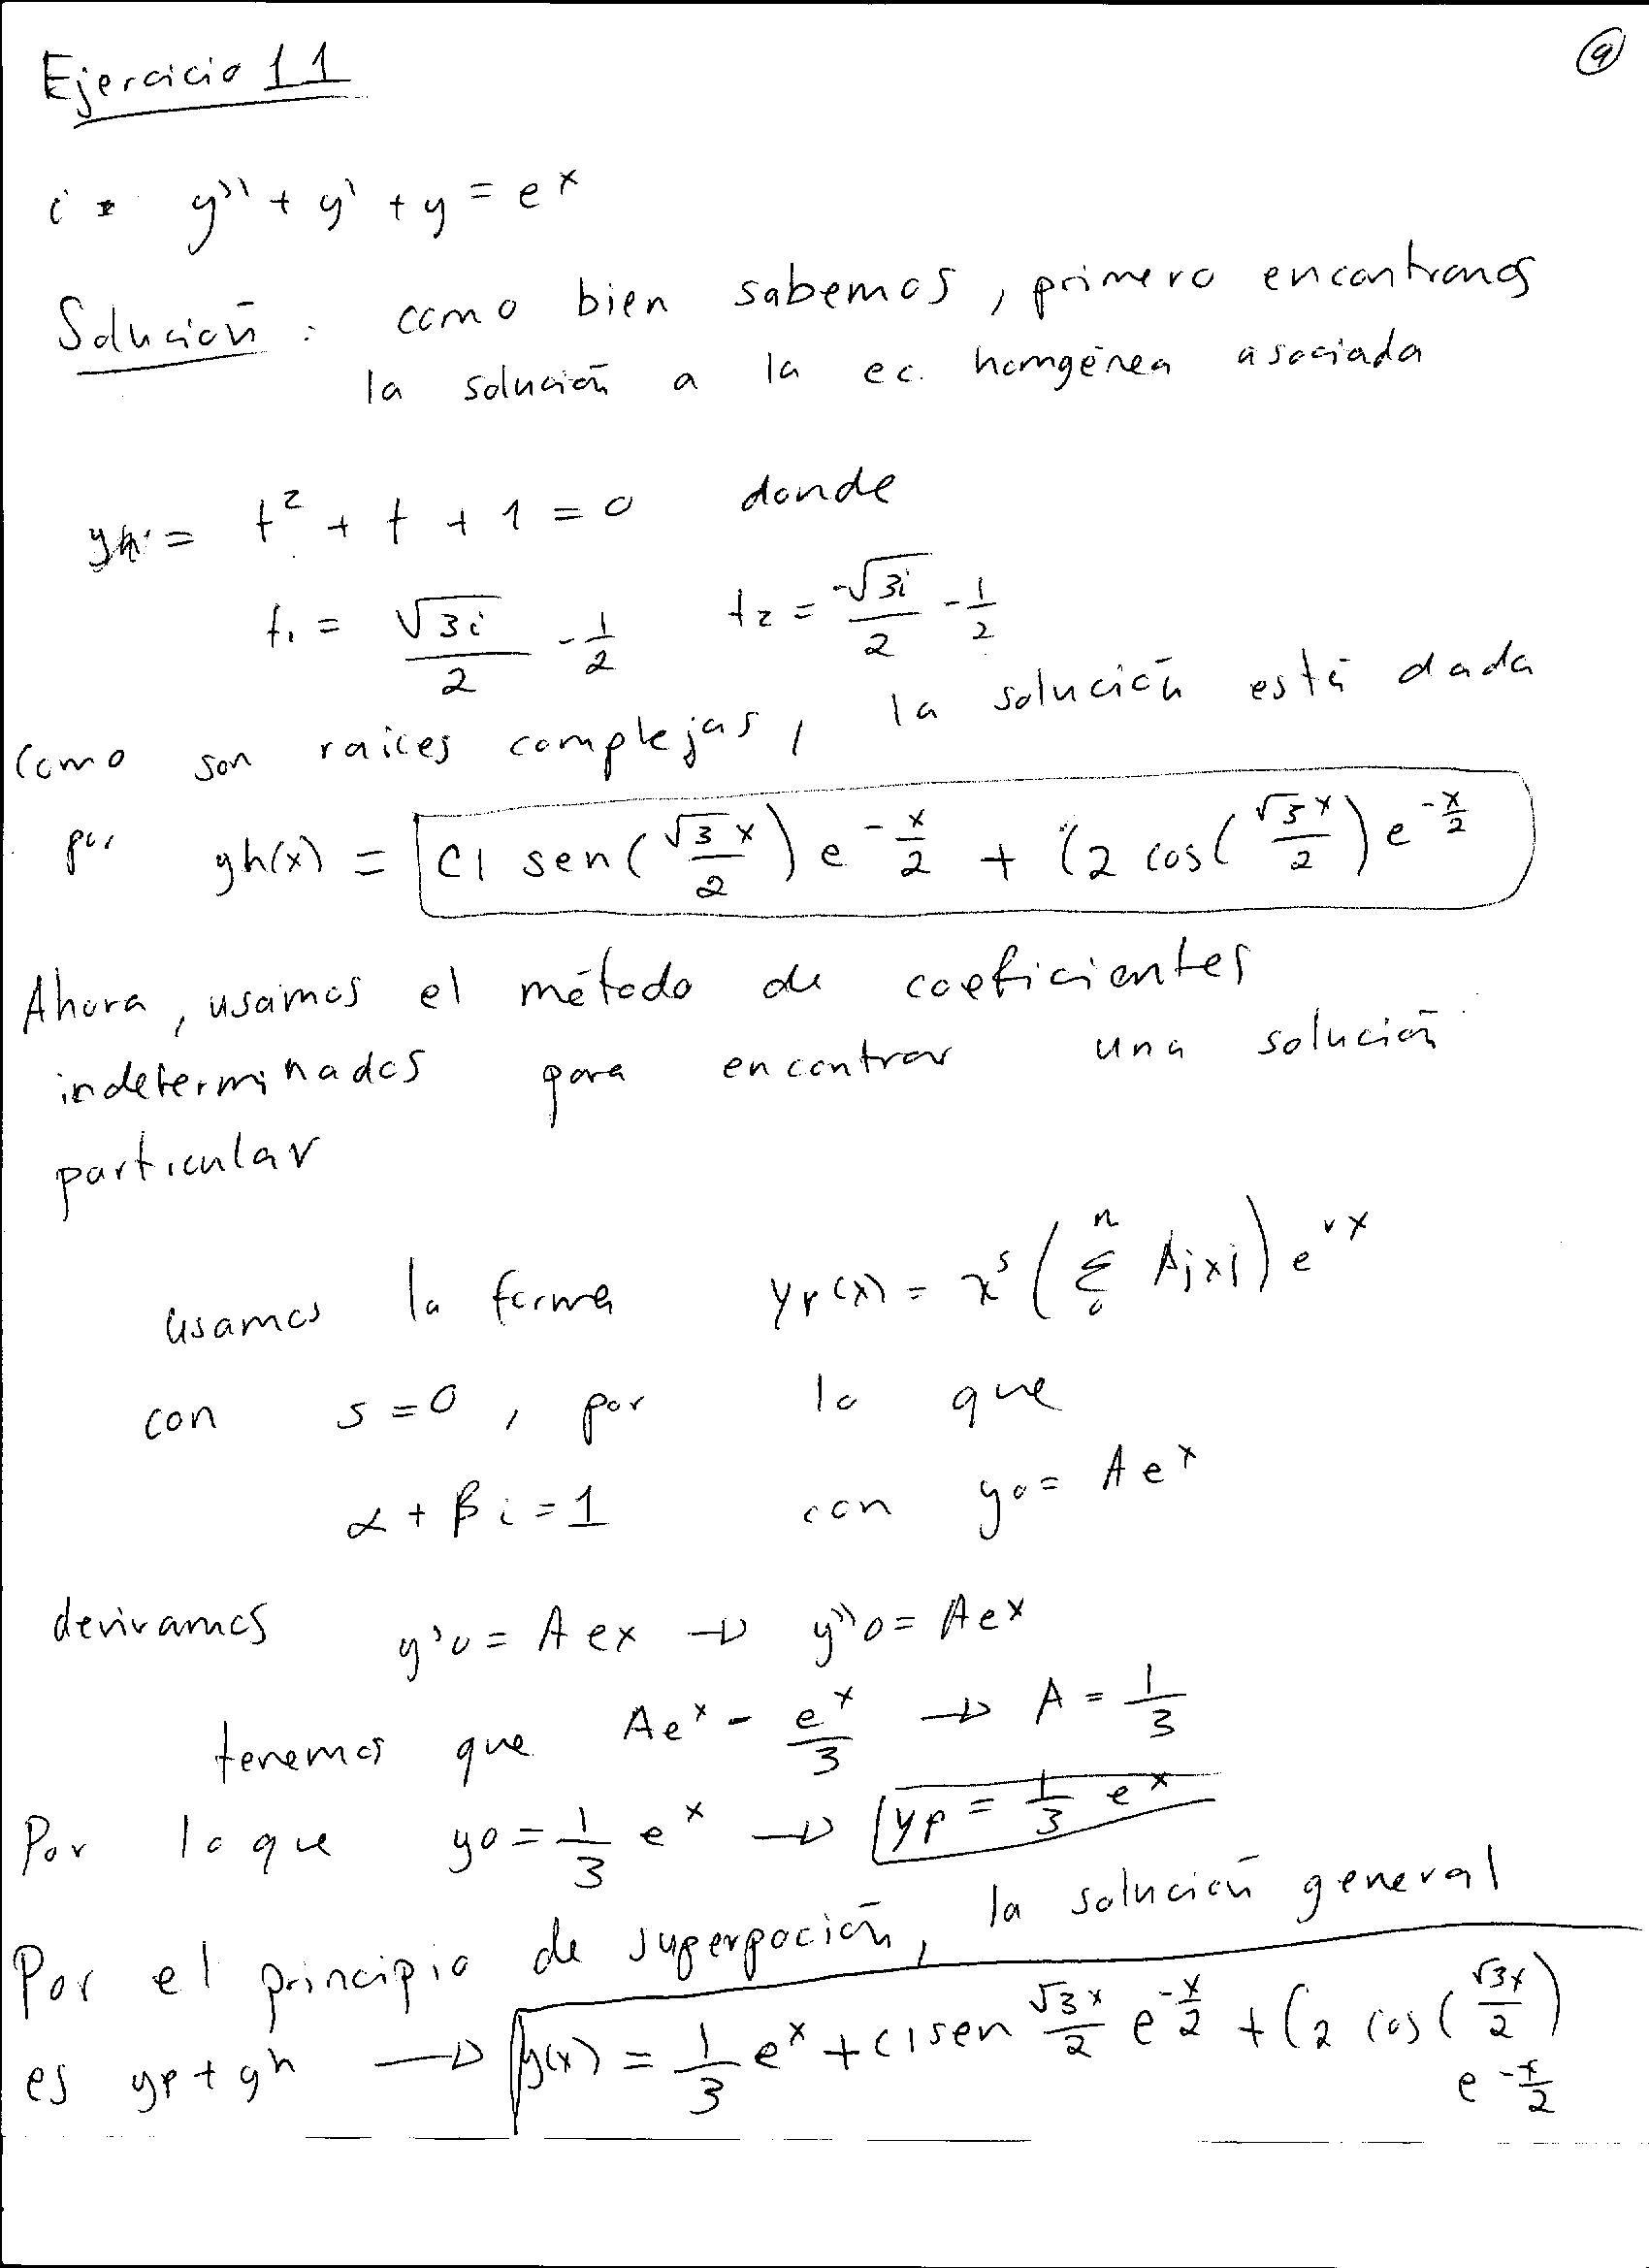 9
Ejercicio 11
i. y'' + y' + y = e^x
Solución: como bien sabemos, primero encontramos
la solución a la ec. homgénea asociada
yh = t^2 + t + 1 = 0 donde
t1 = √3i/2 - 1/2 t2 = -√3i/2 - 1/2
Como son raíces complejas, la solución está dada
por yh(x) = C1 sen(√3x/2) e^-x/2 + C2 cos(√3x/2) e^-x/2
Ahora, usamos el método de coeficientes
indeterminados para encontrar una solución
particular
usamos la forma yp(x) = x^s (Σ_0^n Ajxj) e^rx
con s = 0, por lo que
α + βi = 1 con y0 = Ae^x
derivamos y'0 = Aex → y''0 = Ae^x
tenemos que Ae^x - e^x/3 → A = 1/3
Por lo que y0 = 1/3 e^x → yp = 1/3 e^x
Por el principio de superpoción, la solución general
es yp + yh → y(x) = 1/3 e^x + C1 sen √3x/2 e^-x/2 + C2 cos(√3x/2)
e^-x/2